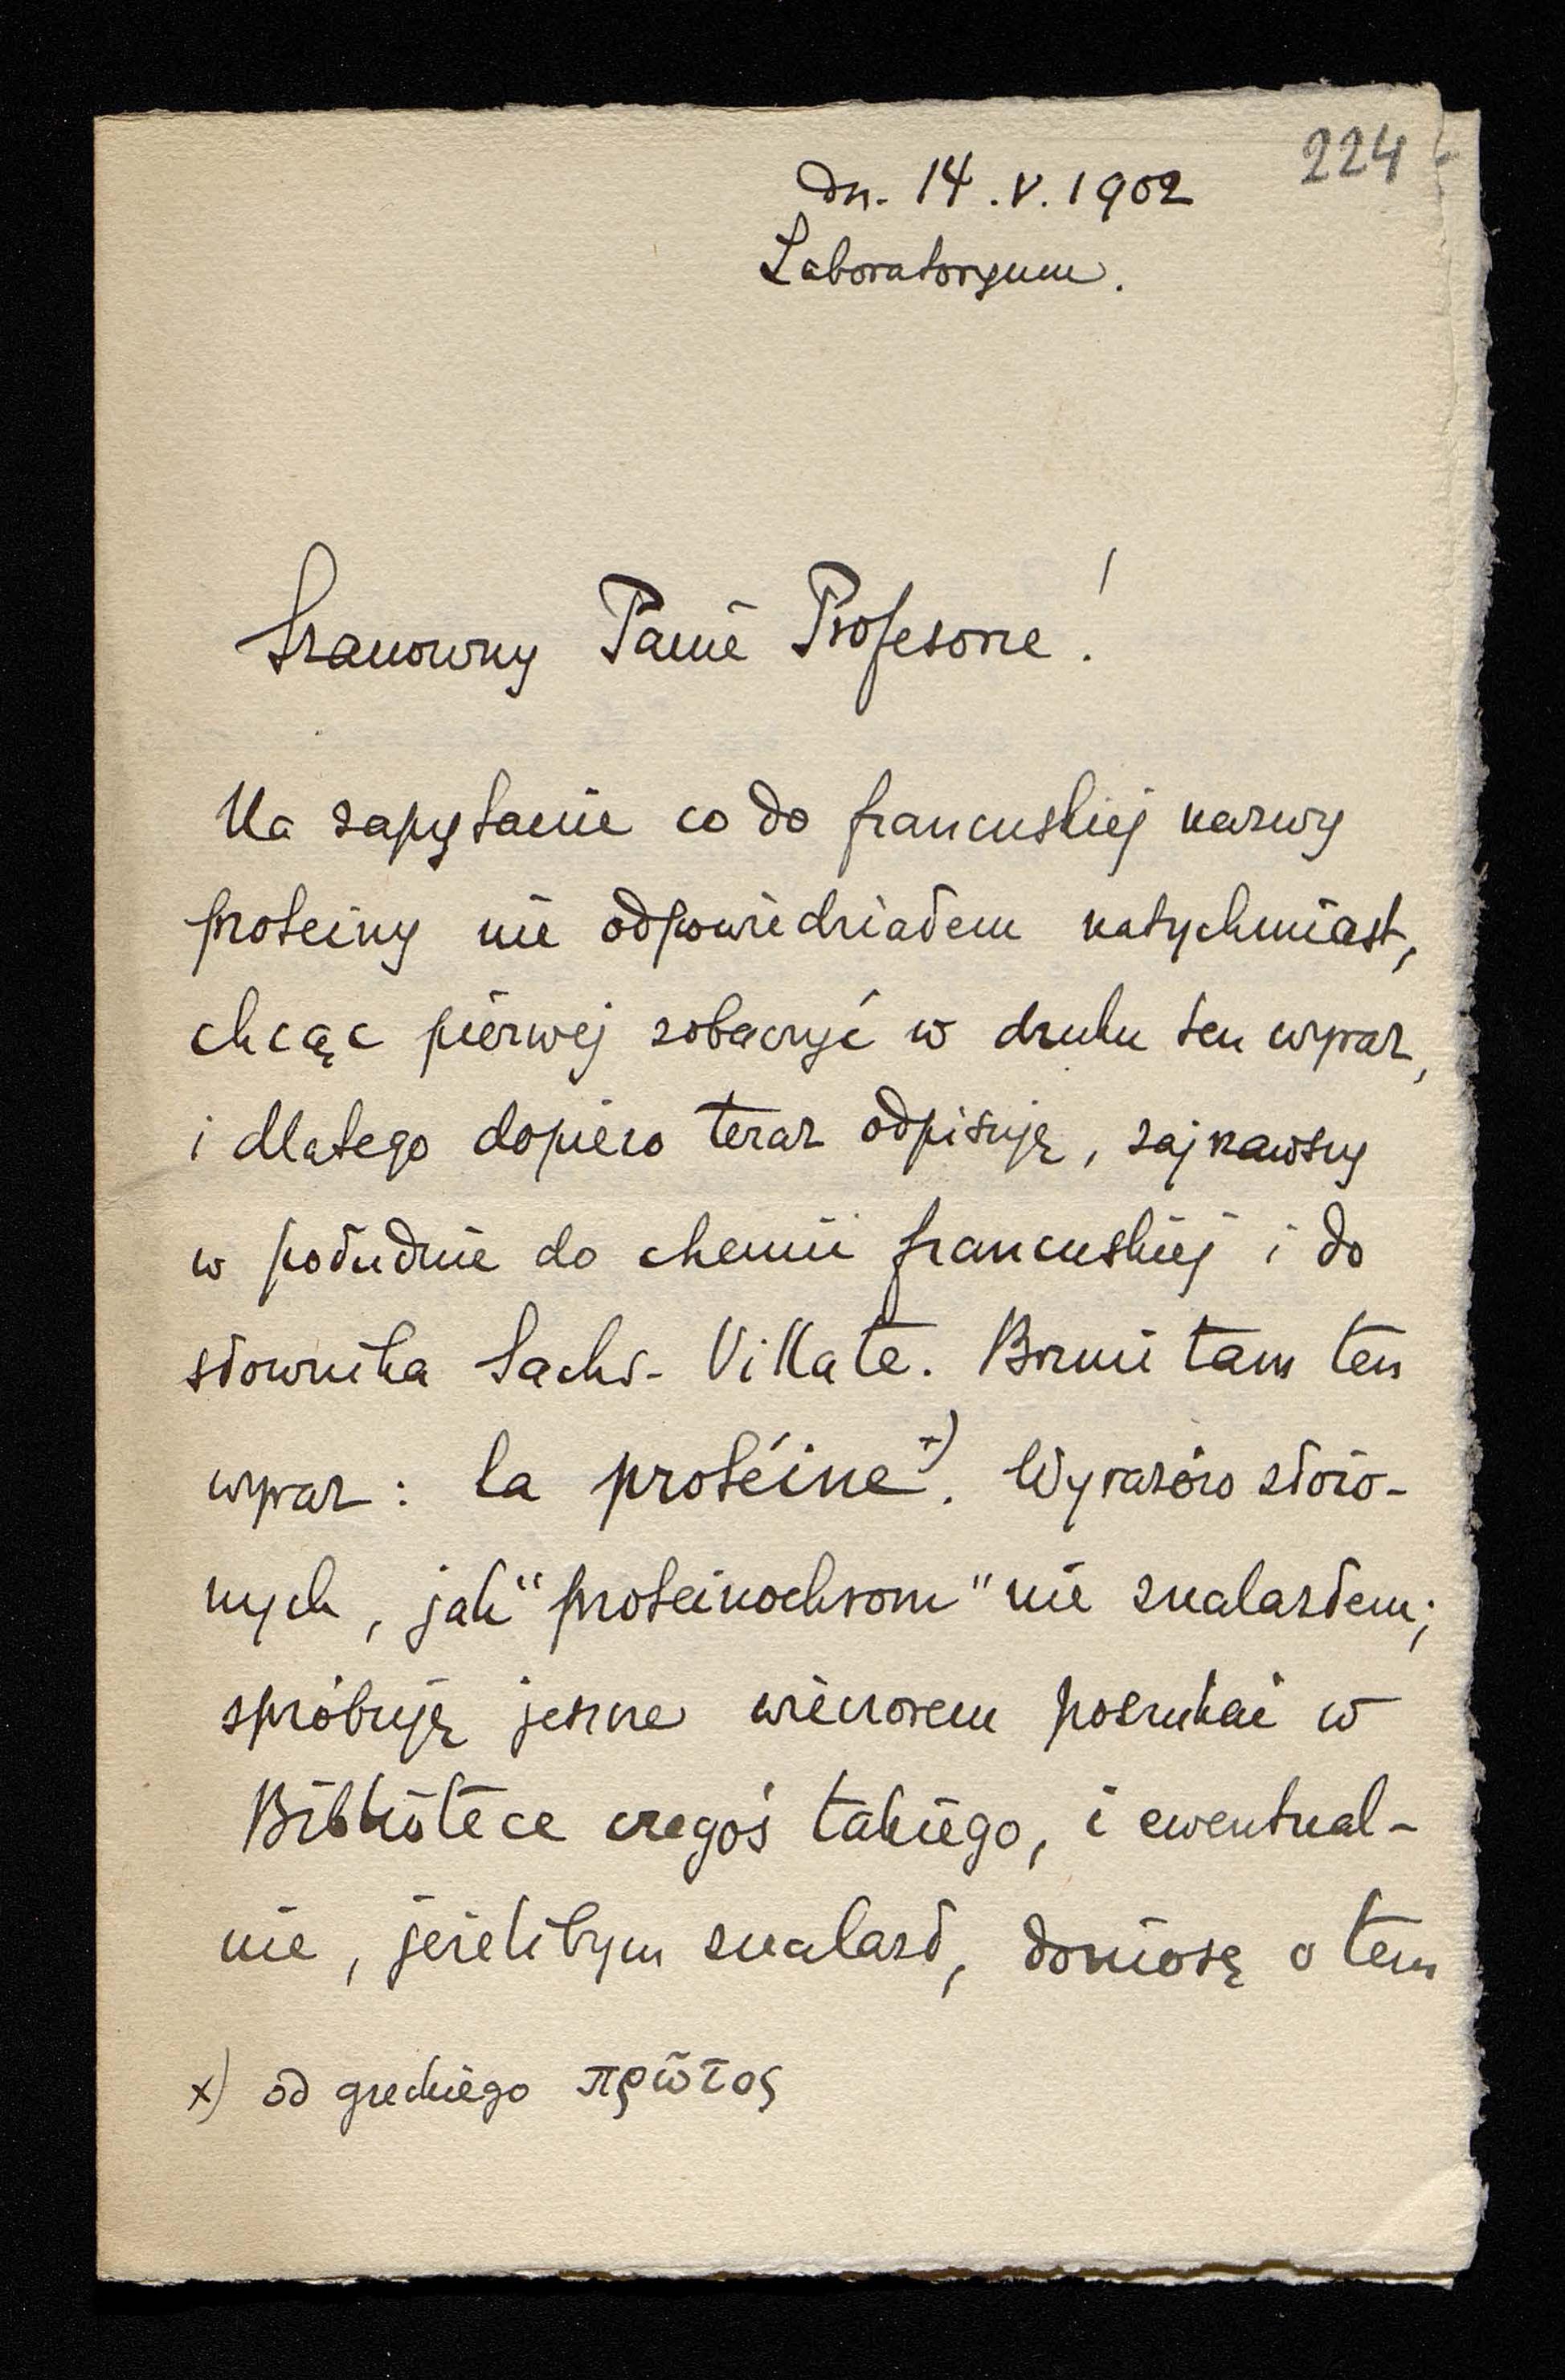 224
dn. 14.V.1902
Laboratoryum.
Szanowny Panie Profesorze!
Na zapytanie co do francuskiej nazwy
proteiny nie odpowiedziałem natychmiast,
chcąc pierwej zobaczyć w druku ten wyraz,
i dlatego dopiero teraz odpisuję, zajrzawszy
w południe do chemii francuskiej i do
słownika Sachs-Villate. Brzmi tam ten
wyraz: la protéine x). Wyrazów złożo-
nych, jak "proteinochrom" nie znalazłem;
spróbuję jeszcze wieczorem poszukać w
Bibliotece czegoś takiego, i ewentual-
nie, jeżelibym znalazł, doniosę o tem
x) od greckiego πρῶτος